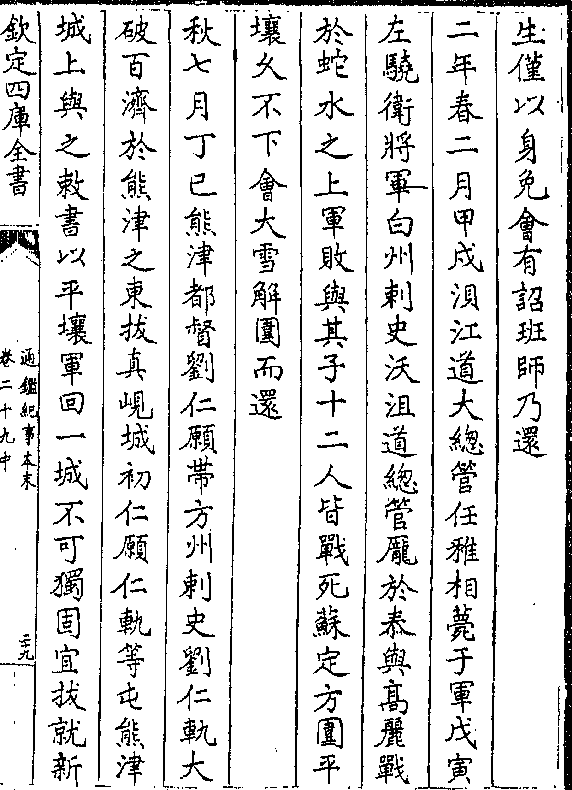 生僅以身免會有詔班師乃還
二年春二月甲戌浿江道大總管任雅相薨于軍戊寅
左驍衛將軍白州刺史沃沮道總管龎於泰與高麗戰
於蛇水之上軍敗與其子十二人皆戰死蘇定方圍平
壤久不下會大雪解圍而還
秋七月丁巳熊津都督劉仁願帶方州刺史劉仁軌大
破百濟於熊津之東拔真峴城初仁願仁軌等屯熊津
城上與之敕書以平壤軍回一城不可獨固宜拔就新
欽定四庫全書
通鑑紀事本末
卷二十九中
二九